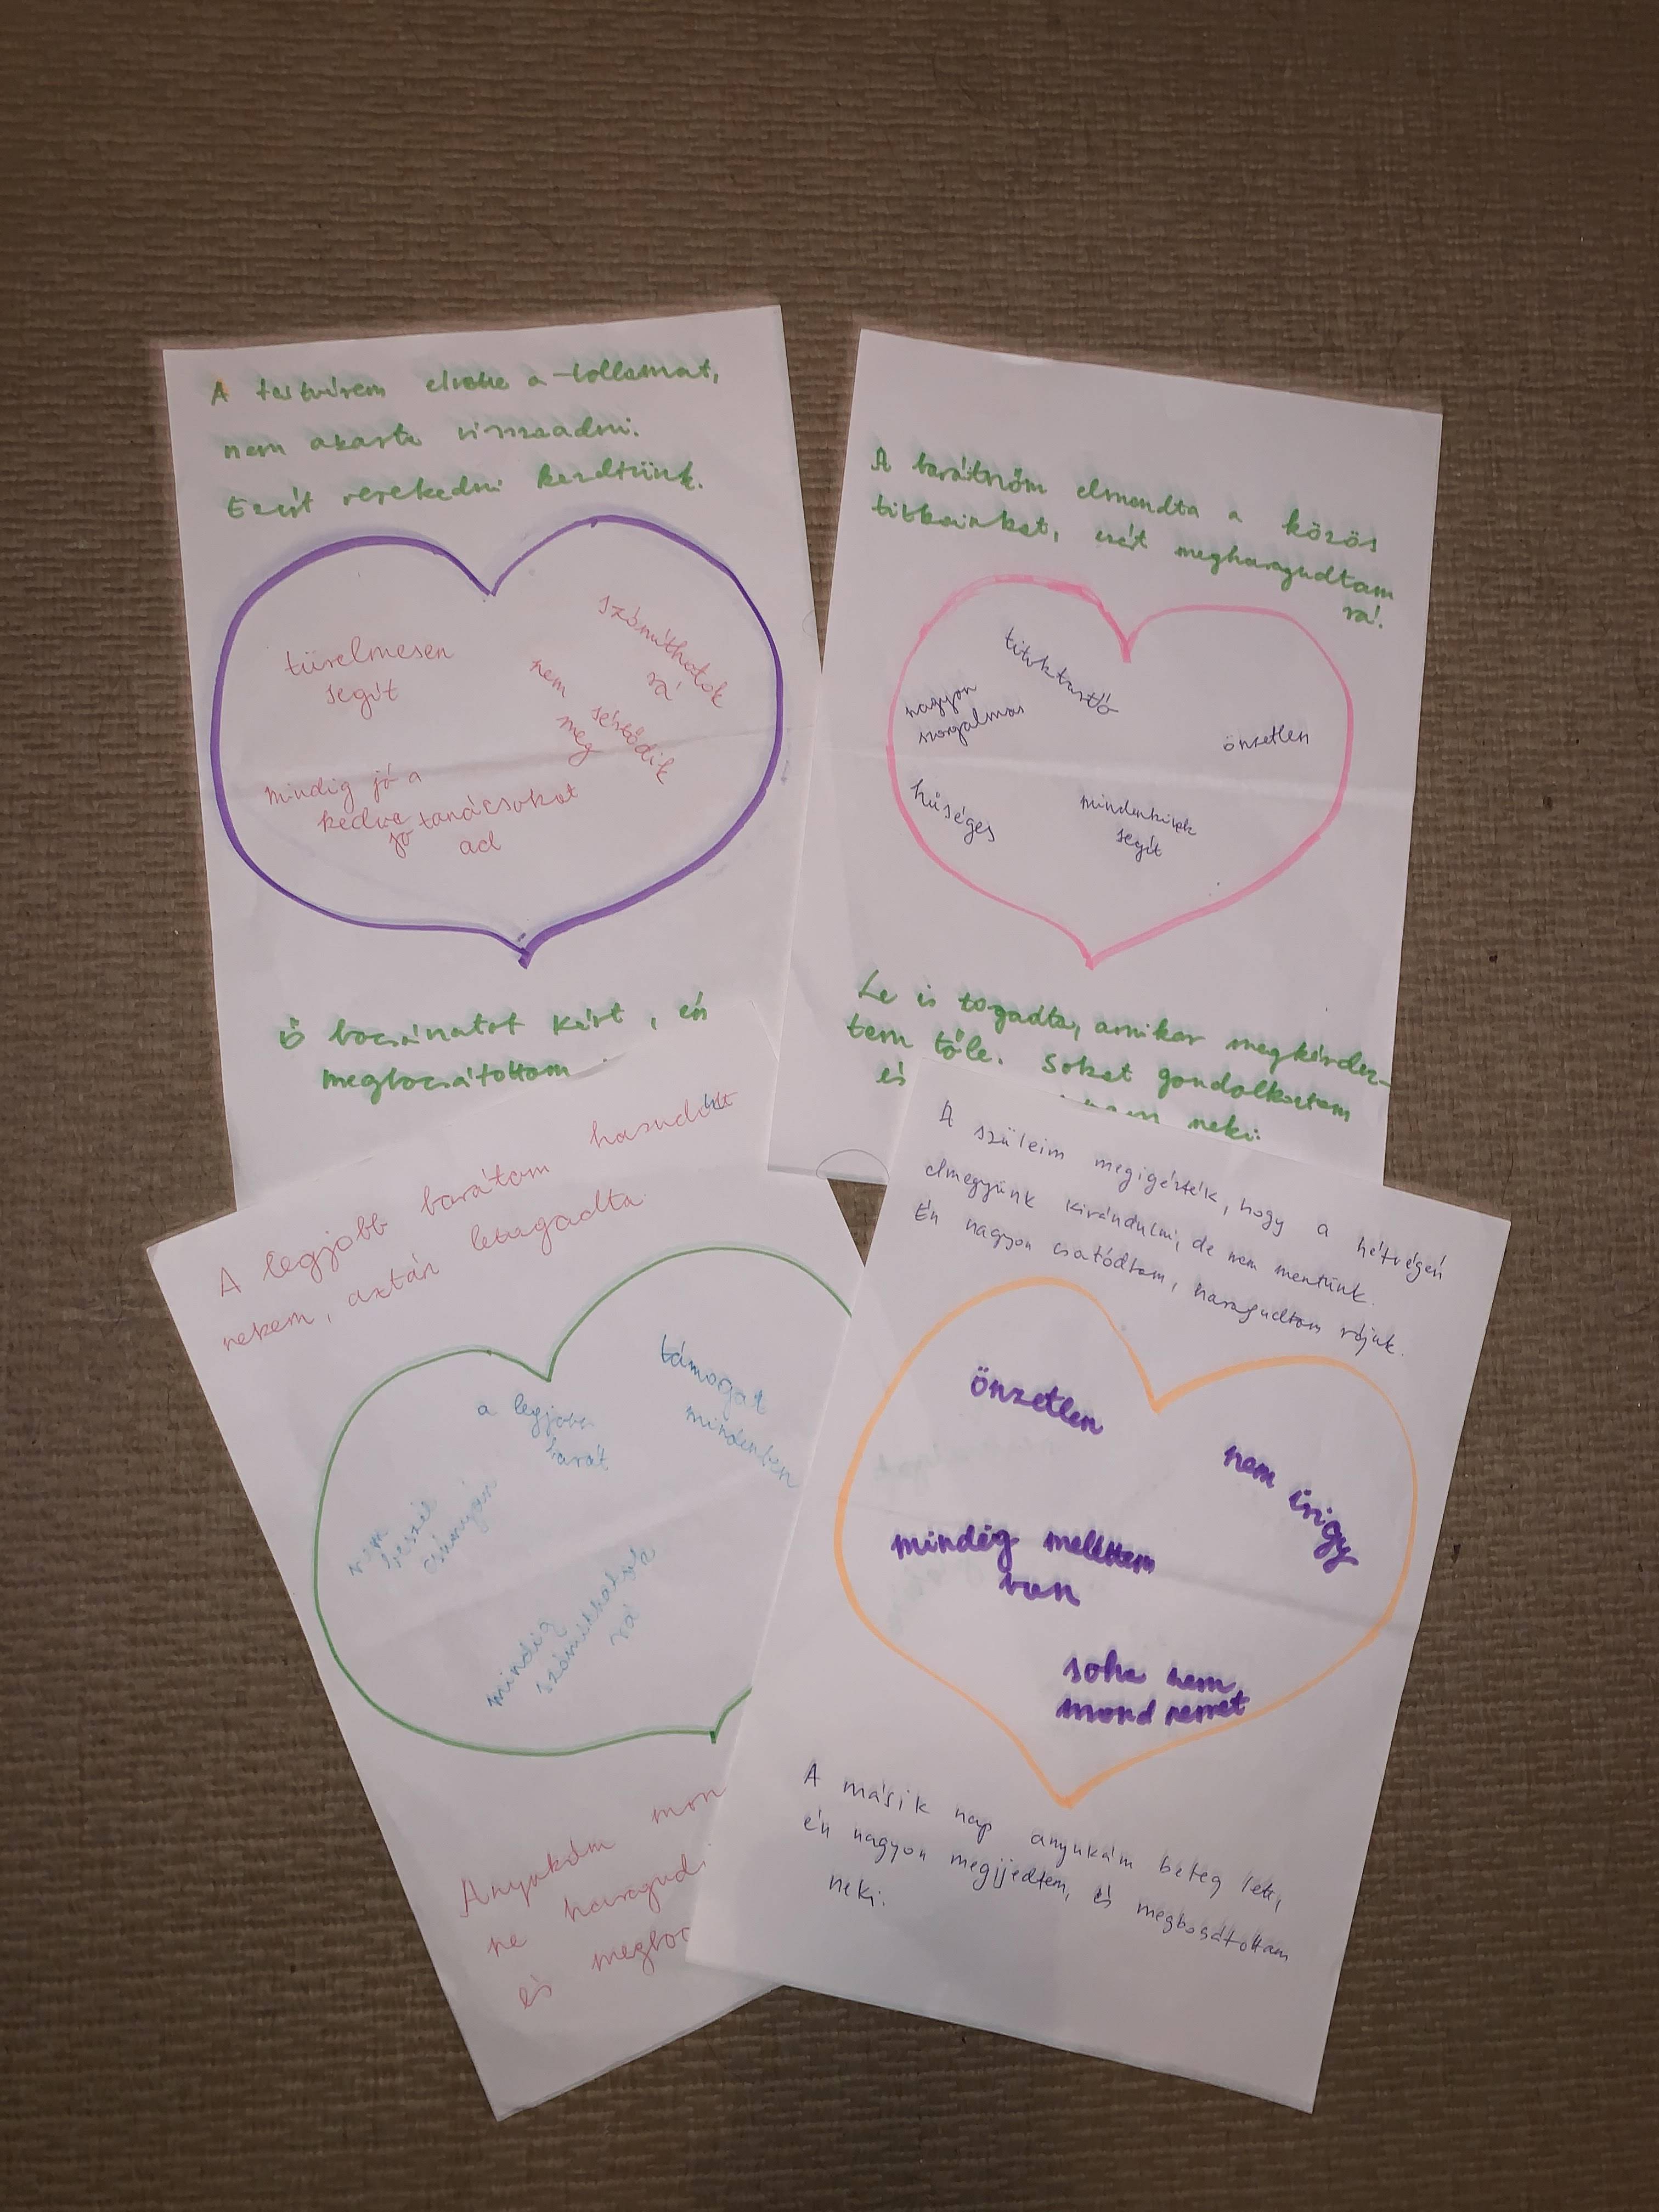 A testvérem elvette a tollamat,
nem akarta visszaadni.
Ezért verekedni kezdtünk.
türelmesen
segít
számíthatok
rá
nem
sértődik
meg
mindig jó a
kedve
jó tanácsokat
ad
Ő bocsánatot kért, én
megbocsátottam
A barátnőm elmondta a közös
titkainkat, ezért megharagudtam
rá!
titoktartó
nagyon
szorgalmas
önzetlen
hűséges
mindenkinek
segít
Le is togadta, amikor megkérdez-
tem tőle. Sokat gondolkoztam
és
neki.
A legjobb barátom hazudott
nekem, aztán letagadta
a legjobb
barát
támogat
mindenben
nem
beszél
csúnyán
mindig
számíthatok
rá
Anyukám mon
ne haragud
és megboc
A szüleim megigérték, hogy a hétvégén
elmegyünk kirándulni, de nem mentünk.
Én nagyon csatódtam, haragudtam rájuk.
önzetlen
nem irigy
mindég mellttem
van
soha nem
mond nemet
A másik nap anyukám beteg lett,
én nagyon megijjedtem, és megbosátottam
neki.